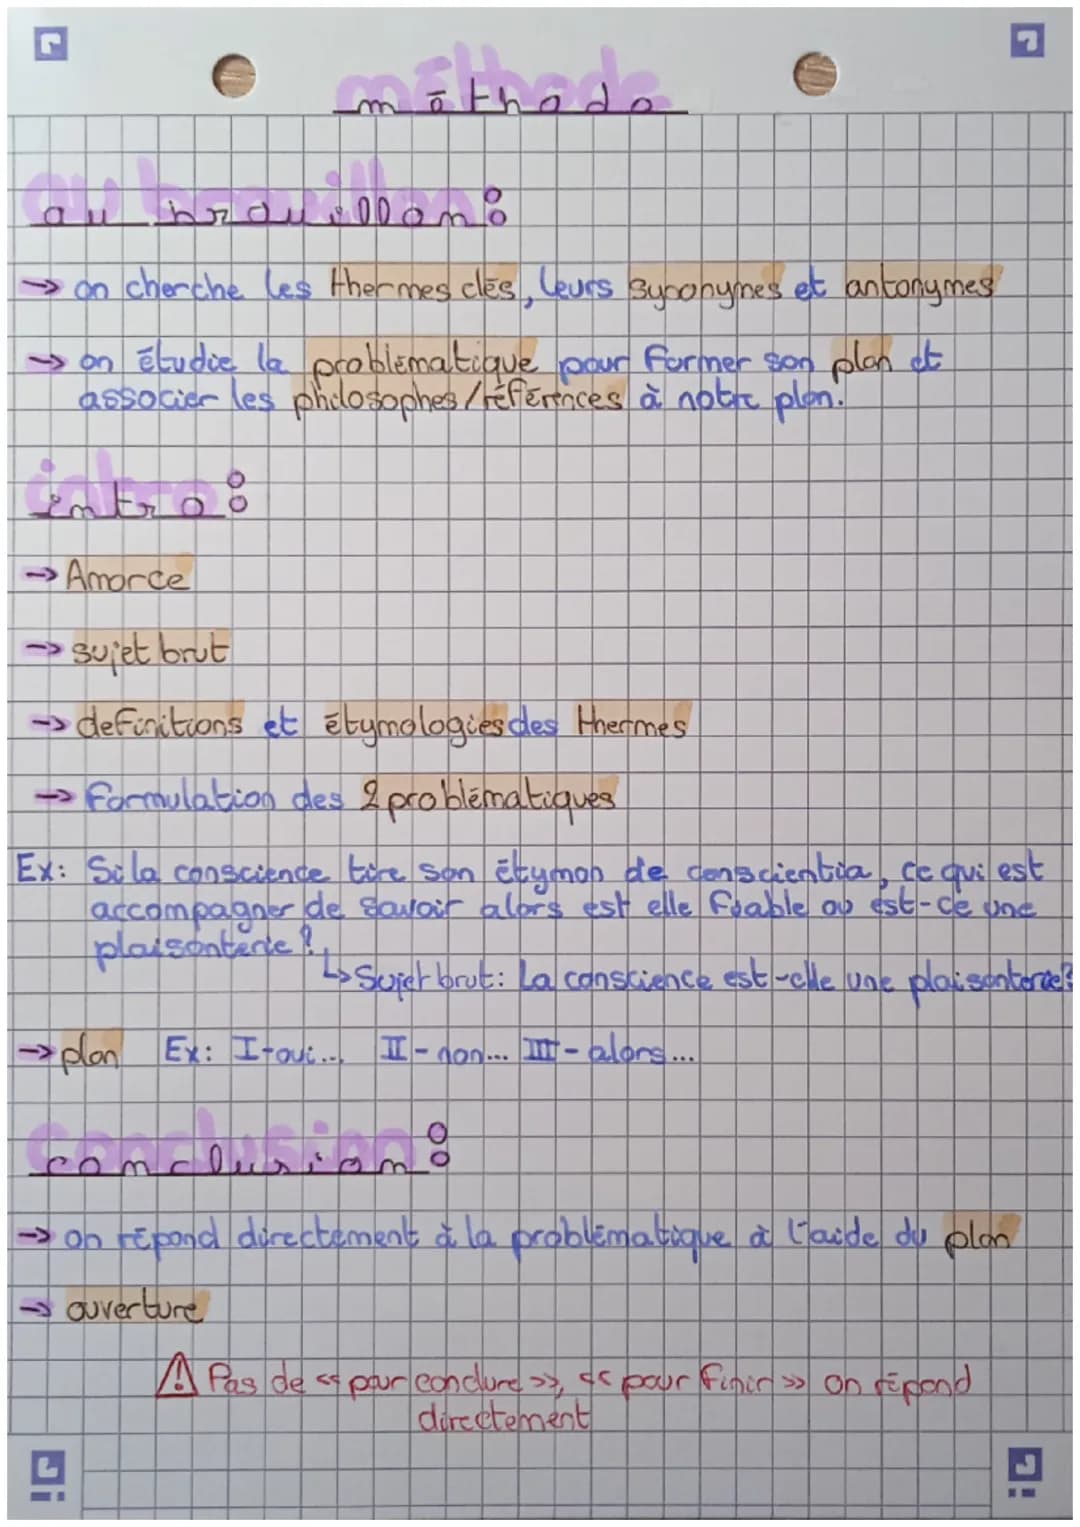 méthode
au brouillon:
→ on cherche les thermes clés, leurs synonymes et antonymes
→ on étudie la problématique pour former son plan et
associer les philosophes/références à notre plan.
intro:
→ Amorce
→ sujet brut
→ definitions et étymologies des thermes
→ Formulation des 2 problématiques
Ex: Si la conscience tire son étymon de conscientia, ce qui est
accompagner de savoir alors est elle fiable ou est-ce une
plaisanterie ?
↳ Sujet brut: La conscience est-elle une plaisanterie?
→ plan Ex: I-oui... II-non... III-alors...
conclusion:
→ on répond directement à la problématique à l'aide du plan
→ ouverture
⚠ Pas de << pour conclure >>, << pour finir >> on répond
directement